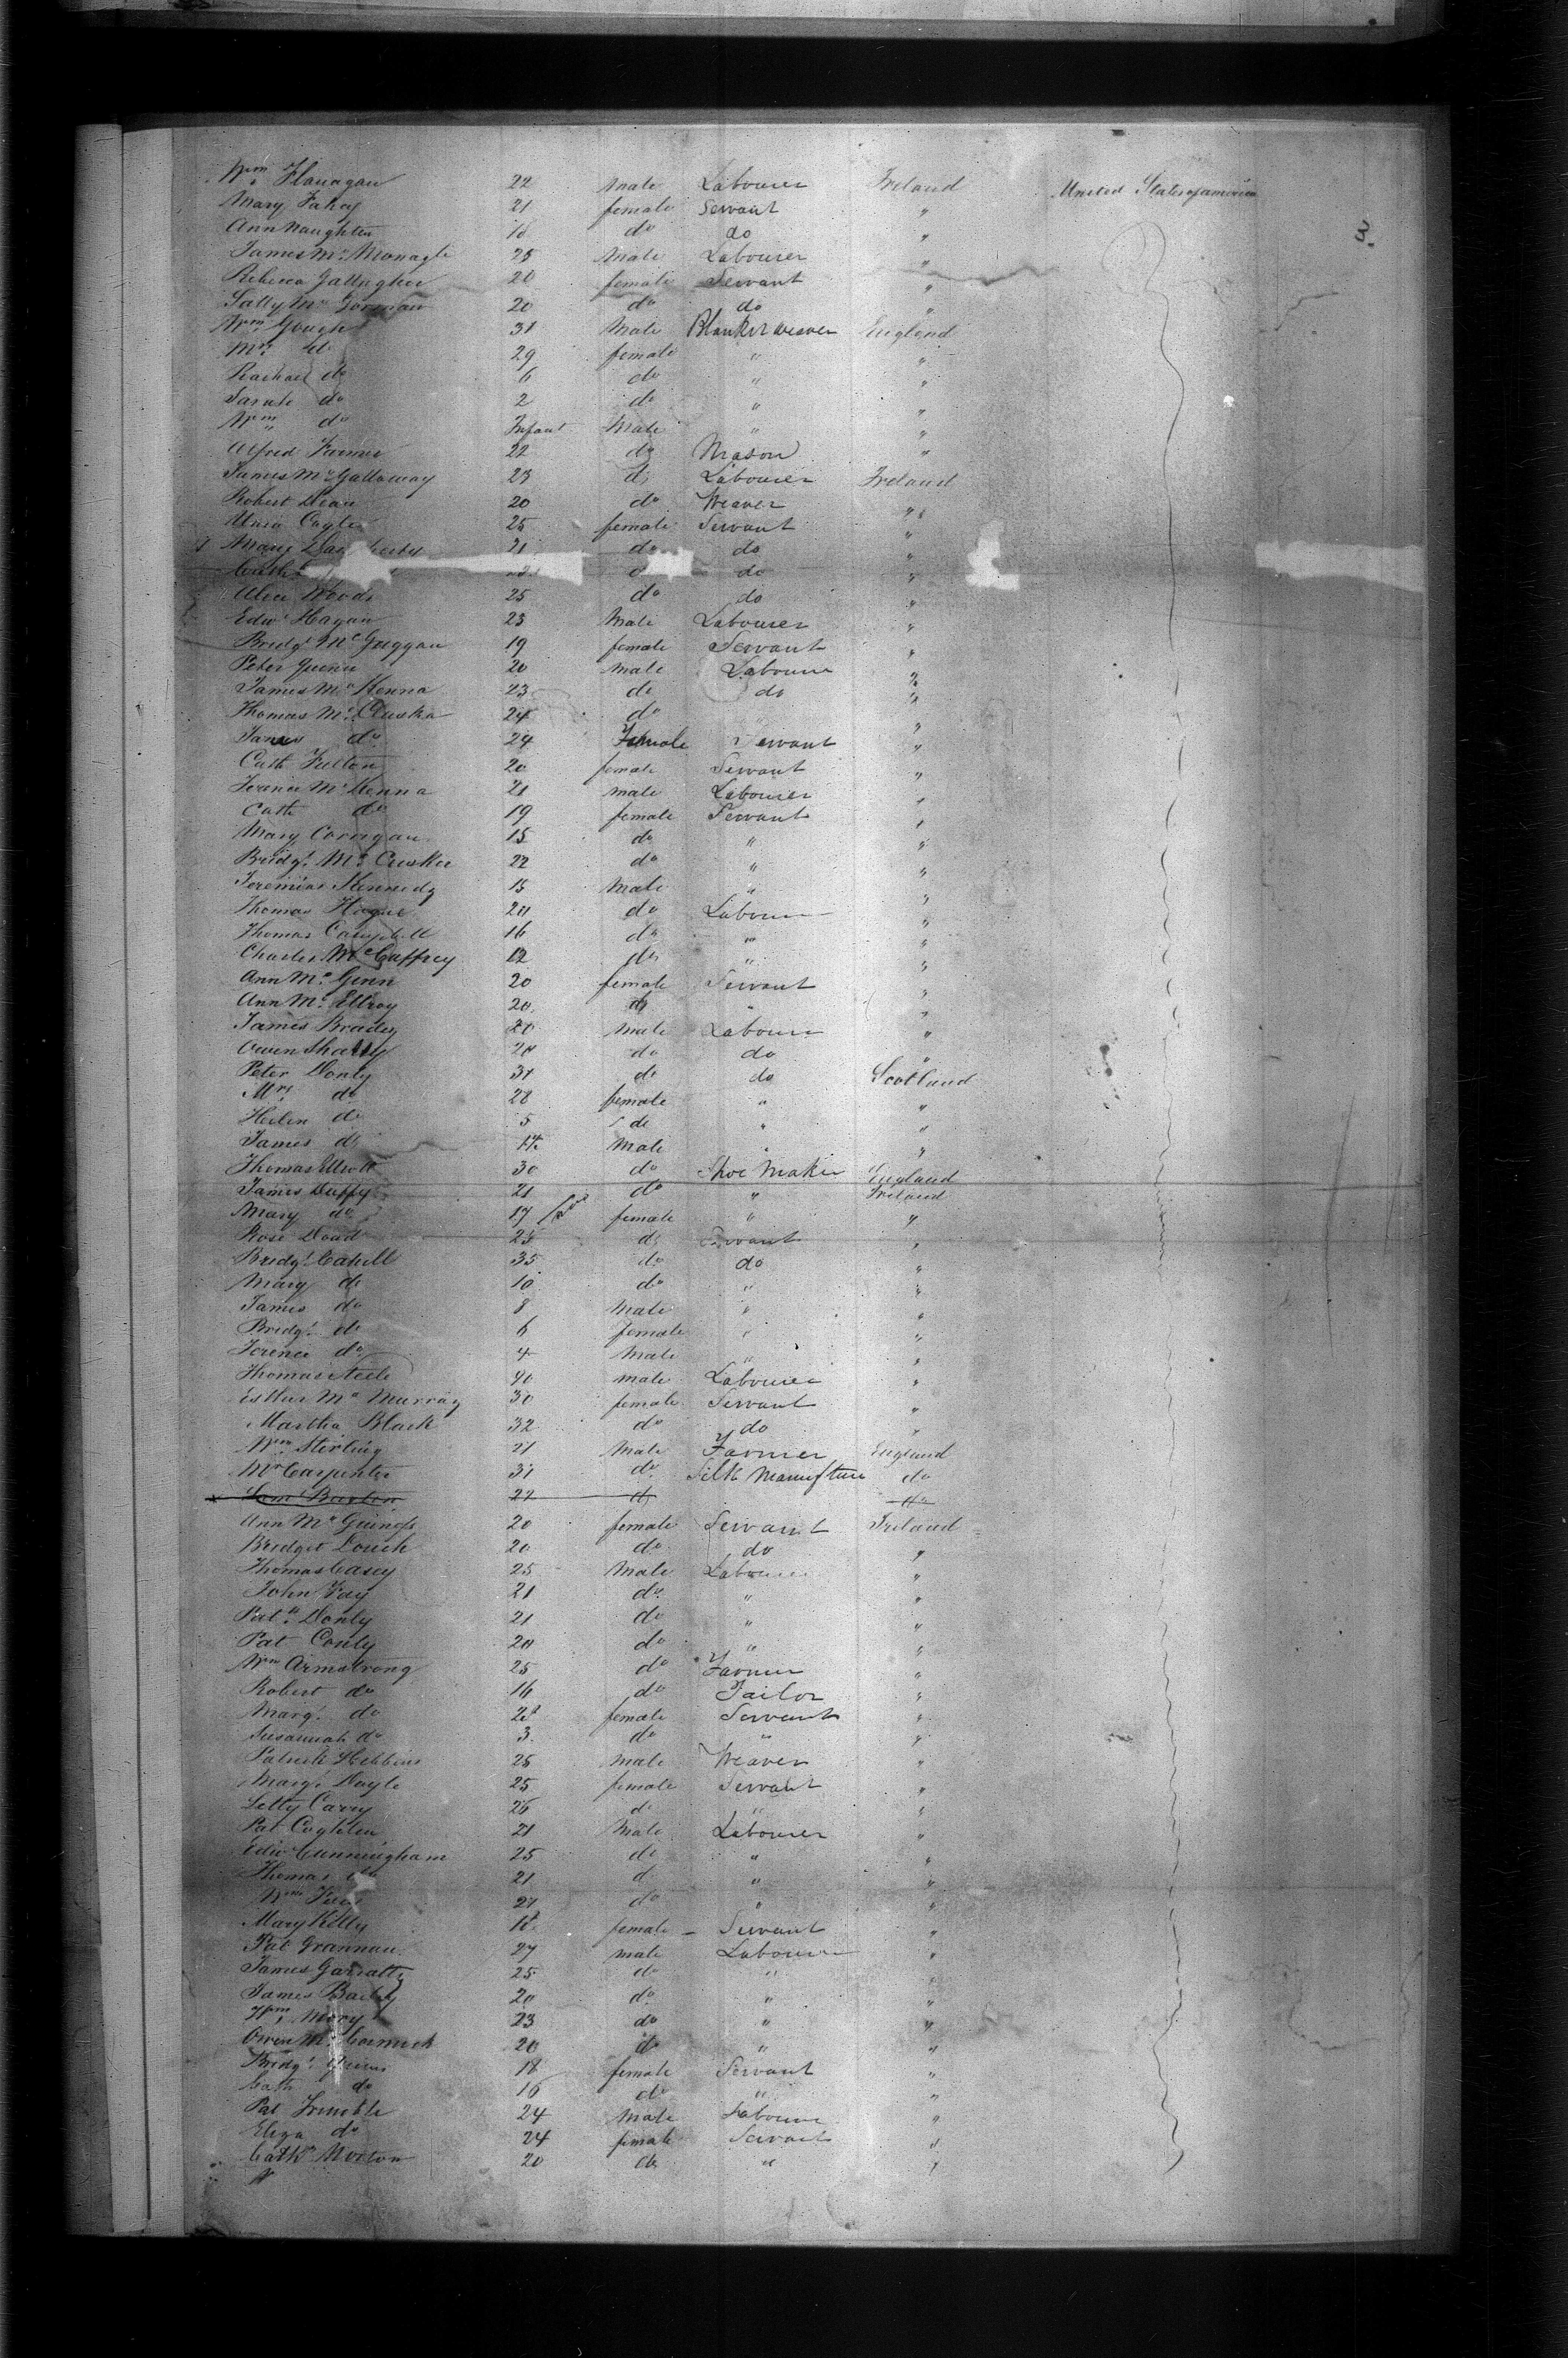 Wm Flanagan 22 male Labourer Ireland United States of america
Mary Fahey 21 female Servant "
Ann Naughten 18 do do "
James Mc Monagle 25 Male Labourer "
Rebecca Gallagher 20 female Servant "
Sally Mc Gorman 20 do do "
Wm Gough 31 Male Blanket weaver England
Mrs do 29 female " "
Rachael do 6 do " "
Sarah do 2 do " "
Wm do Infant Male " "
Alfred Farmer 22 do Mason "
James Mc Gallaway 23 do Labourer Ireland
Robert Dean 20 do Weaver "
25 female Servant "
Mary 21 do do "
Cath do "
Alice Woods 25 do do "
Edwd Hagan 23 Male Labourer "
Bridgt Mc Guggan 19 female Servant "
Peter Quinn 20 male Labourer "
James Mc Kenna 23 do do "
Thomas Mc Cuska 24 do "
do 24 Female Servant "
Cath Fulton 20 female Servant "
Terence Mc Kenna 21 male Labourer "
Cath do 19 female Servant "
Mary Corrigan 15 do " "
Bridgt Mc Cusker 22 do " "
Jeremias Kennedy 15 Male " "
Thomas Hague 20 do Labourer "
Thomas Campbell 16 do " "
Charles Mc Caffrey 12 do " "
Ann Mc Ginn 20 female Servant "
Ann Mc Ellroy 20 do " "
James Brady 20 Male Labourer "
Owen 20 do do "
Peter Donly 31 do do Scotland
Mrs do 28 female " "
Helen do 5 do " "
James do Male " "
Thomas 30 do Shoe Maker England
James Duffy 21 do " Ireland
Mary do 17 female " "
Rose Doud 25 do Servant "
Bridgt Cahill 35 do do "
Mary do 10 do " "
James do 8 Male " "
Bridgt do 6 female " "
Terence do 4 Male " "
Thomas Steele 40 male Labourer "
Esther Mc Murray 30 female Servant "
Martha Black 32 do do "
Wm Stirling 21 Male Farmer England
Mr Carpenter 31 do Silk Manufture do
Saml Barton 22 do do
Ann Mc Guiness 20 female Servant Ireland
Bridget 20 do do "
Thomas Casey 25 Male Labourer "
John Fay 21 do " "
Patk Donly 21 do " "
Pat Conly 20 do " "
Wm Armstrong 25 do Farmer "
Robert do 16 do Tailor "
Margt do female Servant "
Susannah do 3 do " "
Patrick 25 male Weaver "
Margt Doyle 25 female Servant "
Letty Carry 26 do " "
Pat Coghlen 21 Male Labourer "
Edw Cunningham 25 do " "
Thomas do 21 do " "
Wm 21 do " "
Mary Kelly 18 female Servant "
Pat Grannan 27 male Labourer "
James Garratty 25 do " "
James Baily 20 do " "
23 do " "
Owen Mc Cormick 20 do " "
Bridgt 18 female Servant "
Cath do 16 do " "
Pat Trimble 24 Male Labourer "
Eliza do 24 female Servant "
Cath Morton 20 do " "
3.